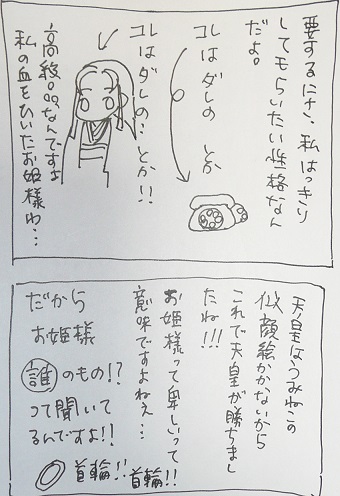 要するにさ、私はっきり
してもらいたい性格なん
だよ。
コレはダレの とか
コレはダレの、とか!!
高級品なんですよ
私の血をひいたお姫様わ…
天皇はうみねこの
似顔絵かかないから
これで天皇が勝ちまし
たね!!!
お姫様って卑しいって
意味ですよねえ…
だから
お姫様
誰のもの!?
って聞いて
るんですよ!!
首輪!!首輪!!